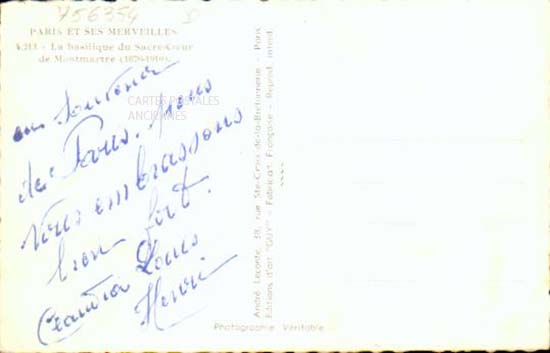 756354 D
PARIS ET SES MERVEILLES
4.213. - La basilique du Sacré-Cœur
de Montmartre (1876-1910).
CARTES POSTALES
ANCIENNES
en souvenir
de Paris. Nous
Vous embrassons
bien fort.
Claudia Louis
Henri
André Leconte, 38, rue Ste-Croix-de-la-Bretonnerie - Paris
Editions d'art "GUY" - Fabricat. Française - Reprod. interd.
Photographie Véritable